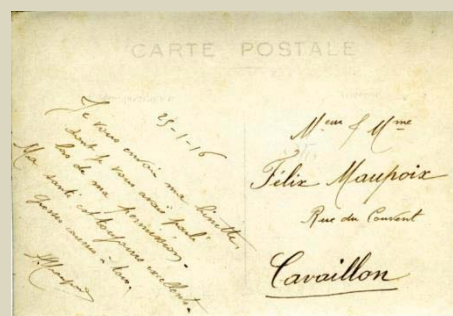 CARTE POSTALE
25-1-16
Je vous envoi ma binette
dont je vous avais parlé
lors de ma permission.
Ma santé est toujours excellente.
à tous.
Meur & Mme
Félix Maupoix
Rue du Couvent
Cavaillon